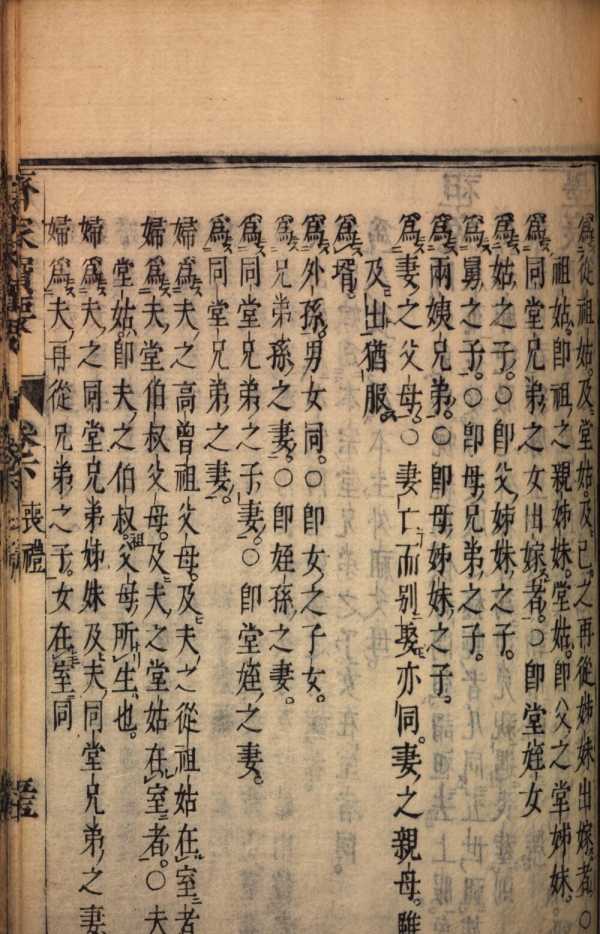 爲從祖姑及堂姑及己之再從姊妹出嫁者○
祖姑即祖之親姊妹堂姑即父之堂姊妹
爲同堂兄弟之女出嫁者○即堂姪女
爲姑之子○即父姊妹之子
爲舅之子○即母兄弟之子
爲兩姨兄弟○即母姊妹之子
爲妻之父母○妻亡而别娶亦同妻之親母雖
及出猶服
爲壻
爲外孫男女同○即女之子女
爲兄弟孫之妻○即姪孫之妻
爲同堂兄弟之子妻○即堂姪之妻
爲同堂兄弟之妻
婦爲夫之高曾祖父母及夫之從祖姑在室者
婦爲夫堂伯叔父母及夫之堂姑在室者○夫
堂姑即夫之伯叔祖父母所生也
婦爲夫之同堂兄弟姊妹及夫同堂兄弟之妻
婦爲夫再從兄弟之子女在室同
齊家寳要
卷六
喪禮